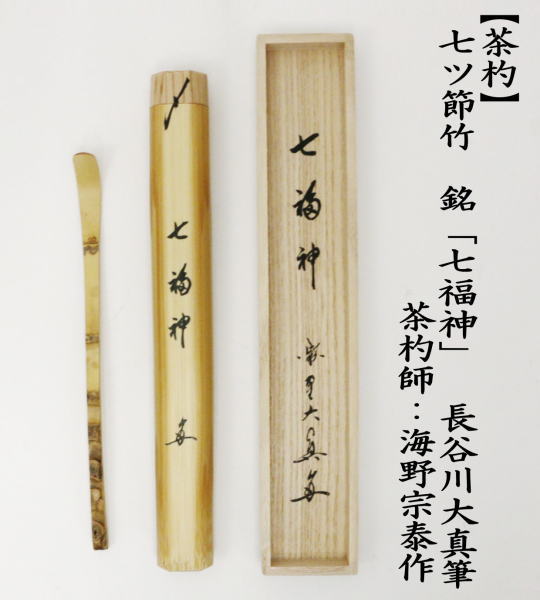 【茶杓】
七ツ節竹　銘「七福神」　長谷川大真筆
茶杓師：海野宗泰作
七福神
七福神
〆